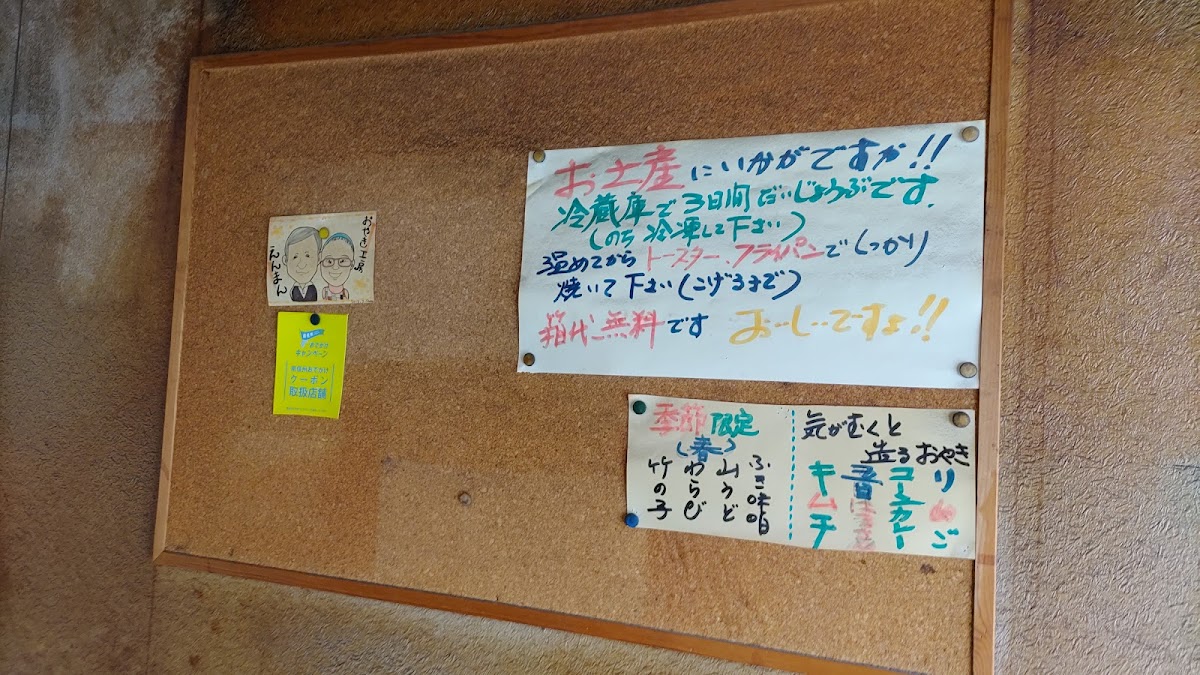 お土産にいかがですか!!
冷蔵庫で3日間だいじょうぶです.
(のち冷凍して下さい)
温めてからトースター、フライパンでしっかり
焼いて下さい(こげるまで)
箱代無料です おーしーですよ!!
おやき工房
えんまん
キャンペーン
クーポン
取扱店舗
季節限定
(春)
ふき味噌
山うど
わらび
竹の子
気がむくと
造るおやき
りんご
コーンカレー
キムチ